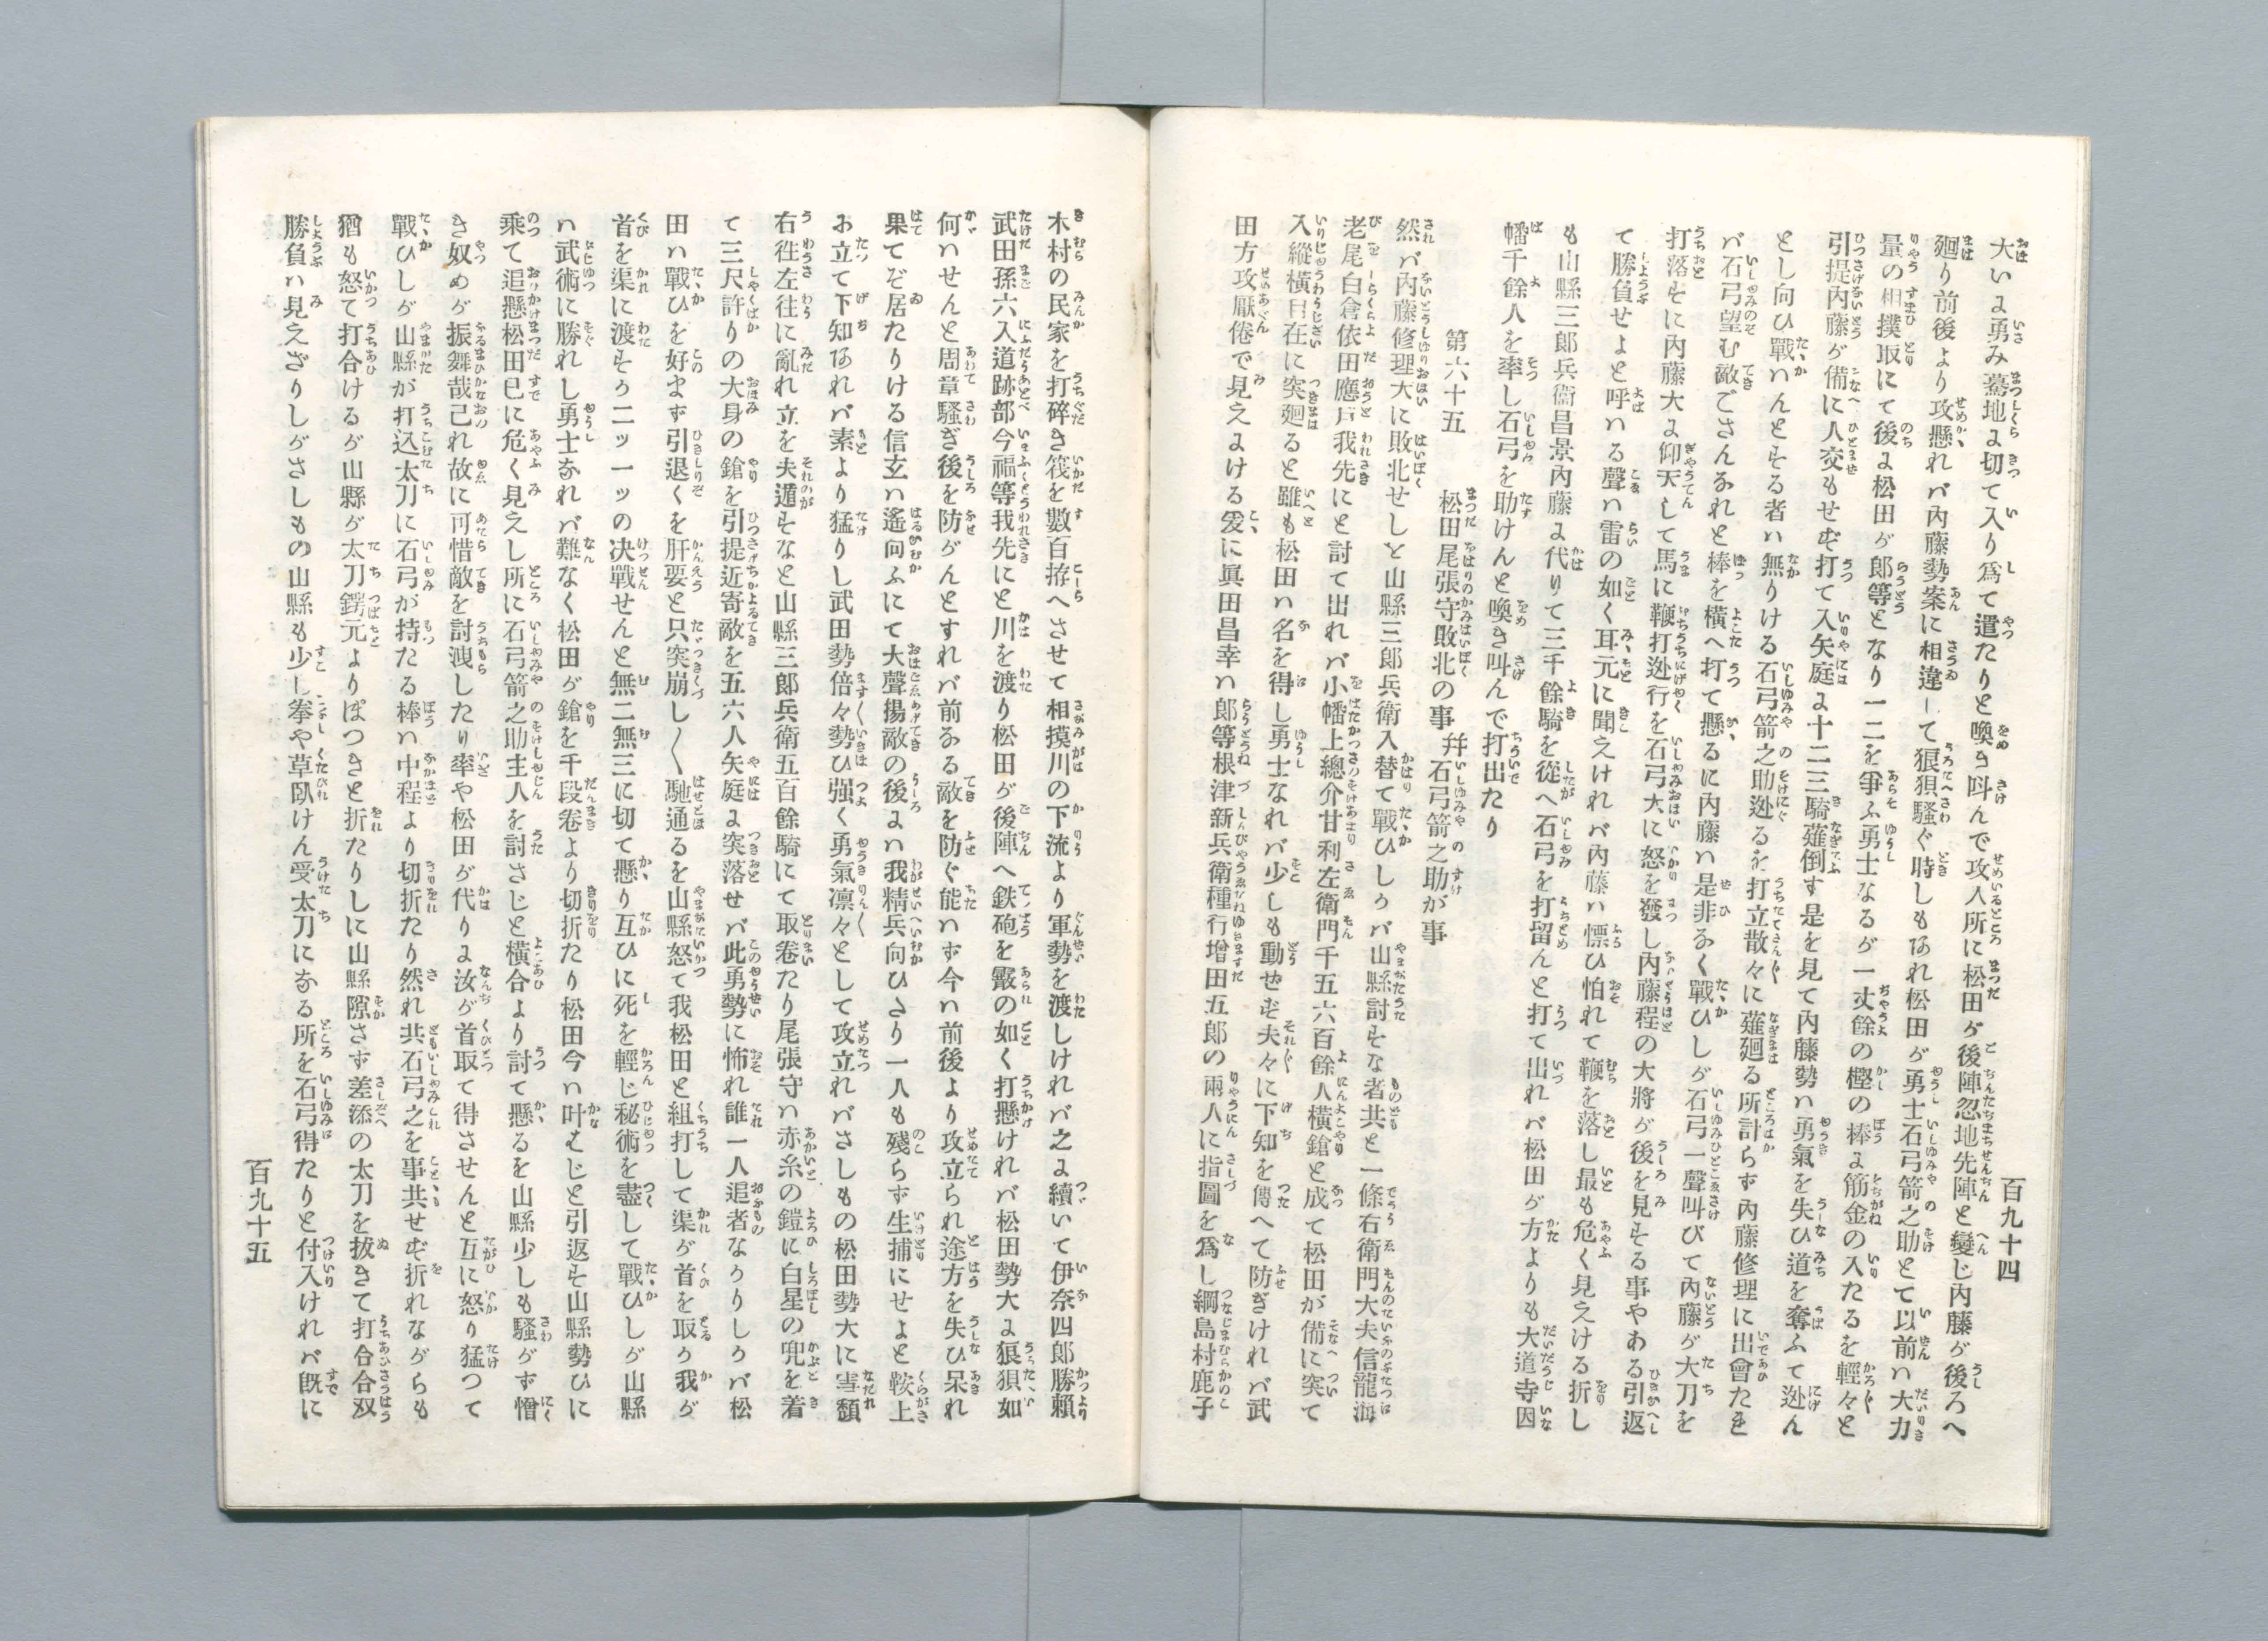 百九十四
大いに勇み驀地に切て入り爲て遣たりと喚き呌んで攻入所に松田が後陣忽地先陣と變じ内藤が後ろへ
廻り前後より攻懸れバ内藤勢案に相違して狼狽騒ぐ時しもあれ松田が勇士石弓箭之助とて以前ハ大力
量の相撲取にて後に松田が郎等となり一二を爭ふ勇士なるが一丈餘の樫の棒に筋金の入たるを輕々と
引提内藤が備に人交もせず打て入矢庭に十二三騎薙倒す是を見て内藤勢ハ勇氣を失ひ道を奪ふて迯ん
とし向ひ戰ハんとする者ハ無りける石弓箭之助迯るを打立散々に薙廻る所計らず内藤修理に出會たれ
バ石弓望む敵ござんなれと棒を横へ打て懸るに内藤ハ是非なく戰ひしが石弓一聲叫びて内藤が大刀を
打落すに内藤大に仰天して馬に鞭打迯行を石弓大に怒を發し内藤程の大將が後を見する事やある引返
て勝負せよと呼ハる聲ハ雷の如く耳元に聞えけれバ内藤ハ慓ひ怕れて鞭を落し最も危く見えける折し
も山縣三郎兵衛昌景内藤に代りて三千餘騎を從へ石弓を打留んと打て出れバ松田が方よりも大道寺因
幡千餘人を率し石弓を助けんと喚き叫んで打出たり
第六十五　松田尾張守敗北の事　幷石弓箭之助が事
然バ内藤修理大に敗北せしと山縣三郎兵衛入替て戰ひしかバ山縣討すな者共と一條右衛門大夫信龍海
老尾白倉依田應戸我先にと討て出れバ小幡上總介甘利左衛門千五六百餘人横鎗と成て松田が備に突て
入縱横自在に突廻ると雖も松田ハ名を得し勇士なれバ少しも動せず夫々に下知を傳へて防ぎけれバ武
田方攻厭倦で見えにける爰に眞田昌幸ハ郎等根津新兵衛種行增田五郎の兩人に指圖を爲し綱島村鹿子
木村の民家を打碎き筏を數百拵へさせて相摸川の下流より軍勢を渡しけれバ之に續いて伊奈四郎勝頼
武田孫六入道跡部今福等我先にと川を渡り松田が後陣へ鉄砲を霰の如く打懸けれバ松田勢大に狼狽如
何ハせんと周章騒ぎ後を防がんとすれバ前なる敵を防ぐ能ハず今ハ前後より攻立られ途方を失ひ呆れ
果てぞ居たりける信玄ハ遙向ふにて大聲揚敵の後にハ我精兵向ひさり一人も殘らず生捕にせよと鞍上
お立て下知あれバ素より猛りし武田勢倍々勢ひ强く勇氣凛々として攻立れバさしもの松田勢大に雪頽
右徃左徃に亂れ立を夫遁すなと山縣三郎兵衛五百餘騎にて取卷たり尾張守ハ赤糸の鎧に白星の兜を着
て三尺許りの大身の鎗を引提近寄敵を五六人矢庭に突落せバ此勇勢に怖れ誰一人追者なかりしかバ松
田ハ戰ひを好まず引退くを肝要と只突崩し〳〵馳通るを山縣怒て我松田と組打して渠が首を取か我が
首を渠に渡すか二ッ一ッの决戰せんと無二無三に切て懸り互ひに死を輕じ秘術を盡して戰ひしが山縣
ハ武術に勝れし勇士なれバ難なく松田が鎗を千段卷より切折たり松田今ハ叶むじと引返す山縣勢ひに
乘て追懸松田已に危く見えし所に石弓箭之助主人を討さじと横合より討て懸るを山縣少しも騒がず憎
き奴めが振舞哉己れ故に可惜敵を討洩したり率や松田が代りに汝が首取て得させんと互に怒り猛つて
戰ひしが山縣が打込太刀に石弓が持たる棒ハ中程より切折たり然れ共石弓之を事共せず折れながらも
猶も怒て打合けるが山縣が太刀鍔元よりぽつきと折たりしに山縣隙さず差添の太刀を拔きて打合合双
勝負ハ見えざりしがさしもの山縣も少し拳や草臥けん受太刀になる所を石弓得たりと付入けれバ既に
百九十五